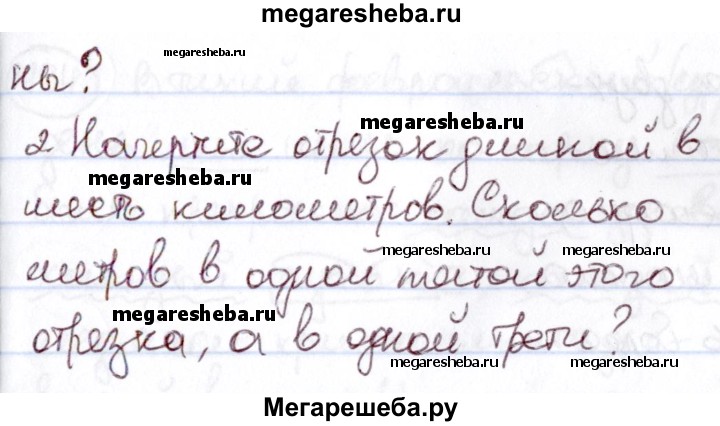 megaresheba.ru
megaresheba.ru
ны?
megaresheba.ru
2 Начертите отрезок длиной в
megaresheba.ru
шесть километров. Сколько
megaresheba.ru megaresheba.ru
метров в одной пятой этого
megaresheba.ru
отрезка, а в одной трети?
megaresheba.ru megaresheba.ru
Мегарешеба.ру